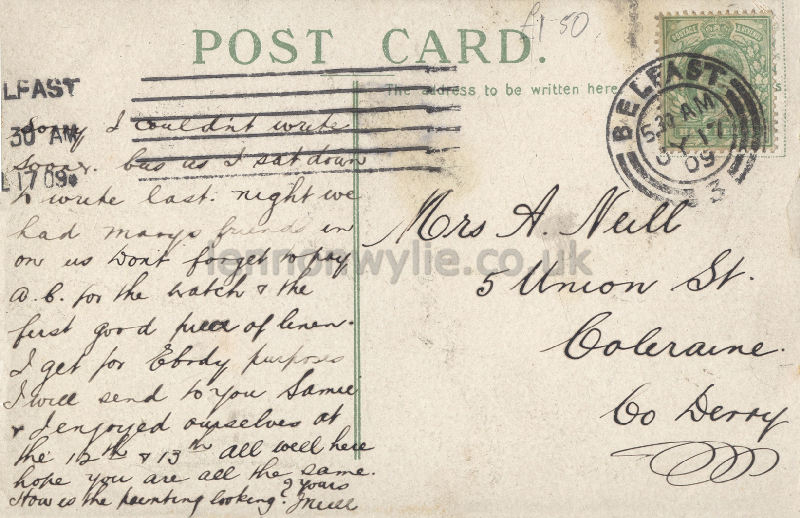 £1-50
POST CARD.
The address to be written here
POSTAGE REVENUE
BELFAST
5.30 AM
JL 17
09
3
LFAST
30 AM
L 17 09
Sorry I couldn't write
sooner. but as I sat down
to write last night we
had Marys friends in
on us Dont forget to pay
A.C. for the watch & the
first good piece of linen.
I get for Ebody purposes
I will send to you Samie
& I enjoyed ourselves at
the 12th & 13th all well here
hope you are all the same.
How is the painting looking? Yours
J Neill
Mrs A. Neill
5 Union St.
Coleraine.
Co Derry
lennonwylie.co.uk